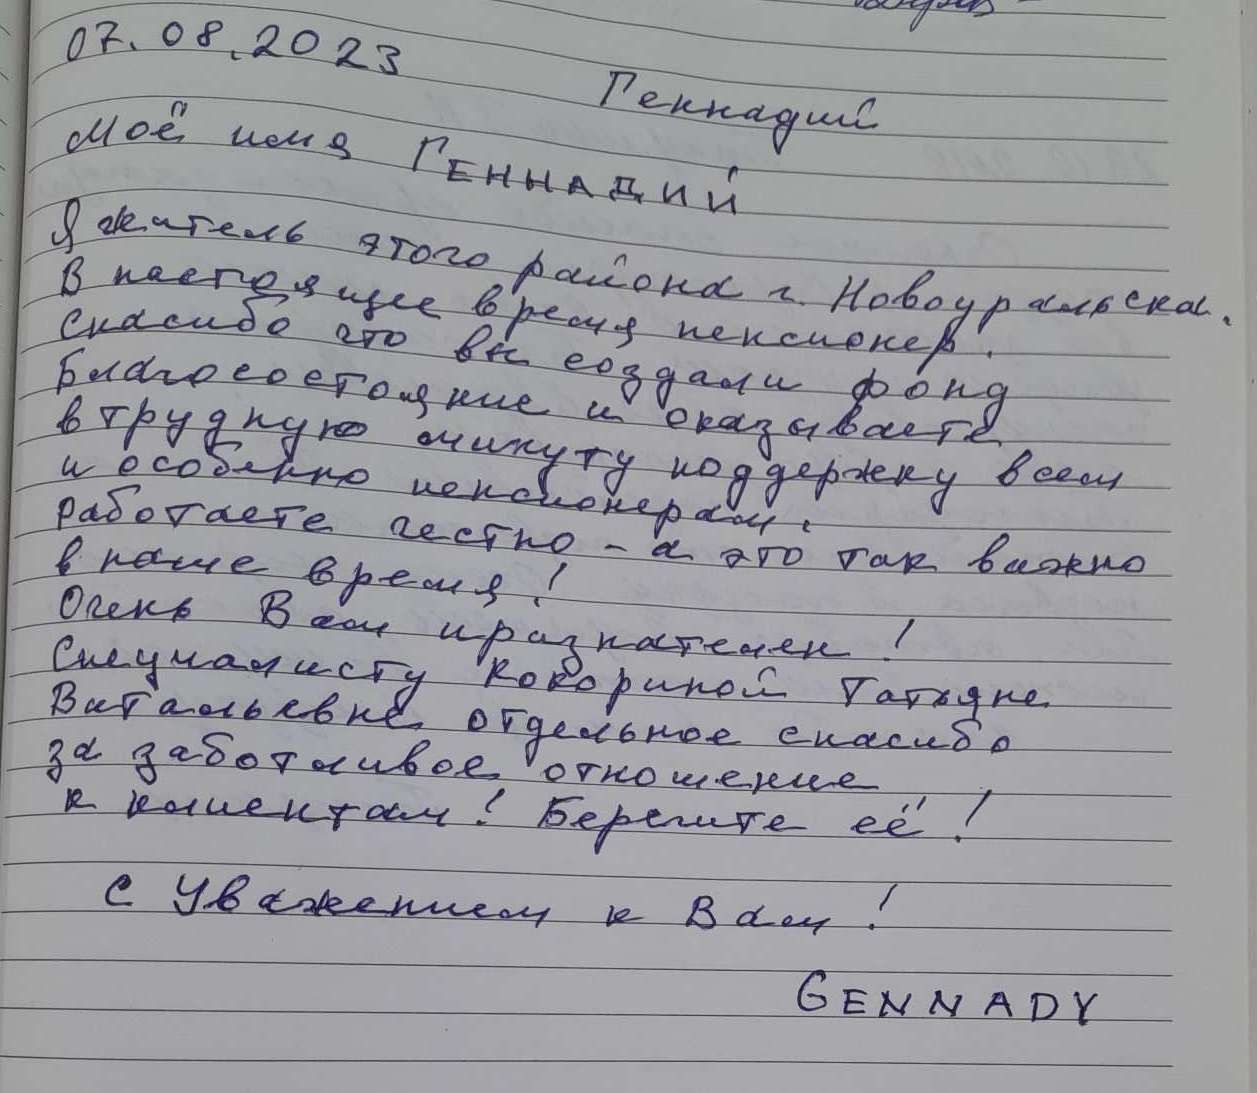 07.08.2023
Геннадий
Моё имя ГЕННАДИЙ
Я житель этого района г. Новоуральска.
В настоящее время пенсионер.
Спасибо что вы создали фонд
Благосостояние и оказываете
в трудную минуту поддержку всем
и особенно пенсионерам.
работаете честно - а это так важно
в наше время!
Очень Вам признателен!
Специалисту Кокориной Татьяне
Витальевне отдельное спасибо
за заботливое отношение
к клиентам! Берегите её!
С Уважением к Вам!
GENNADY